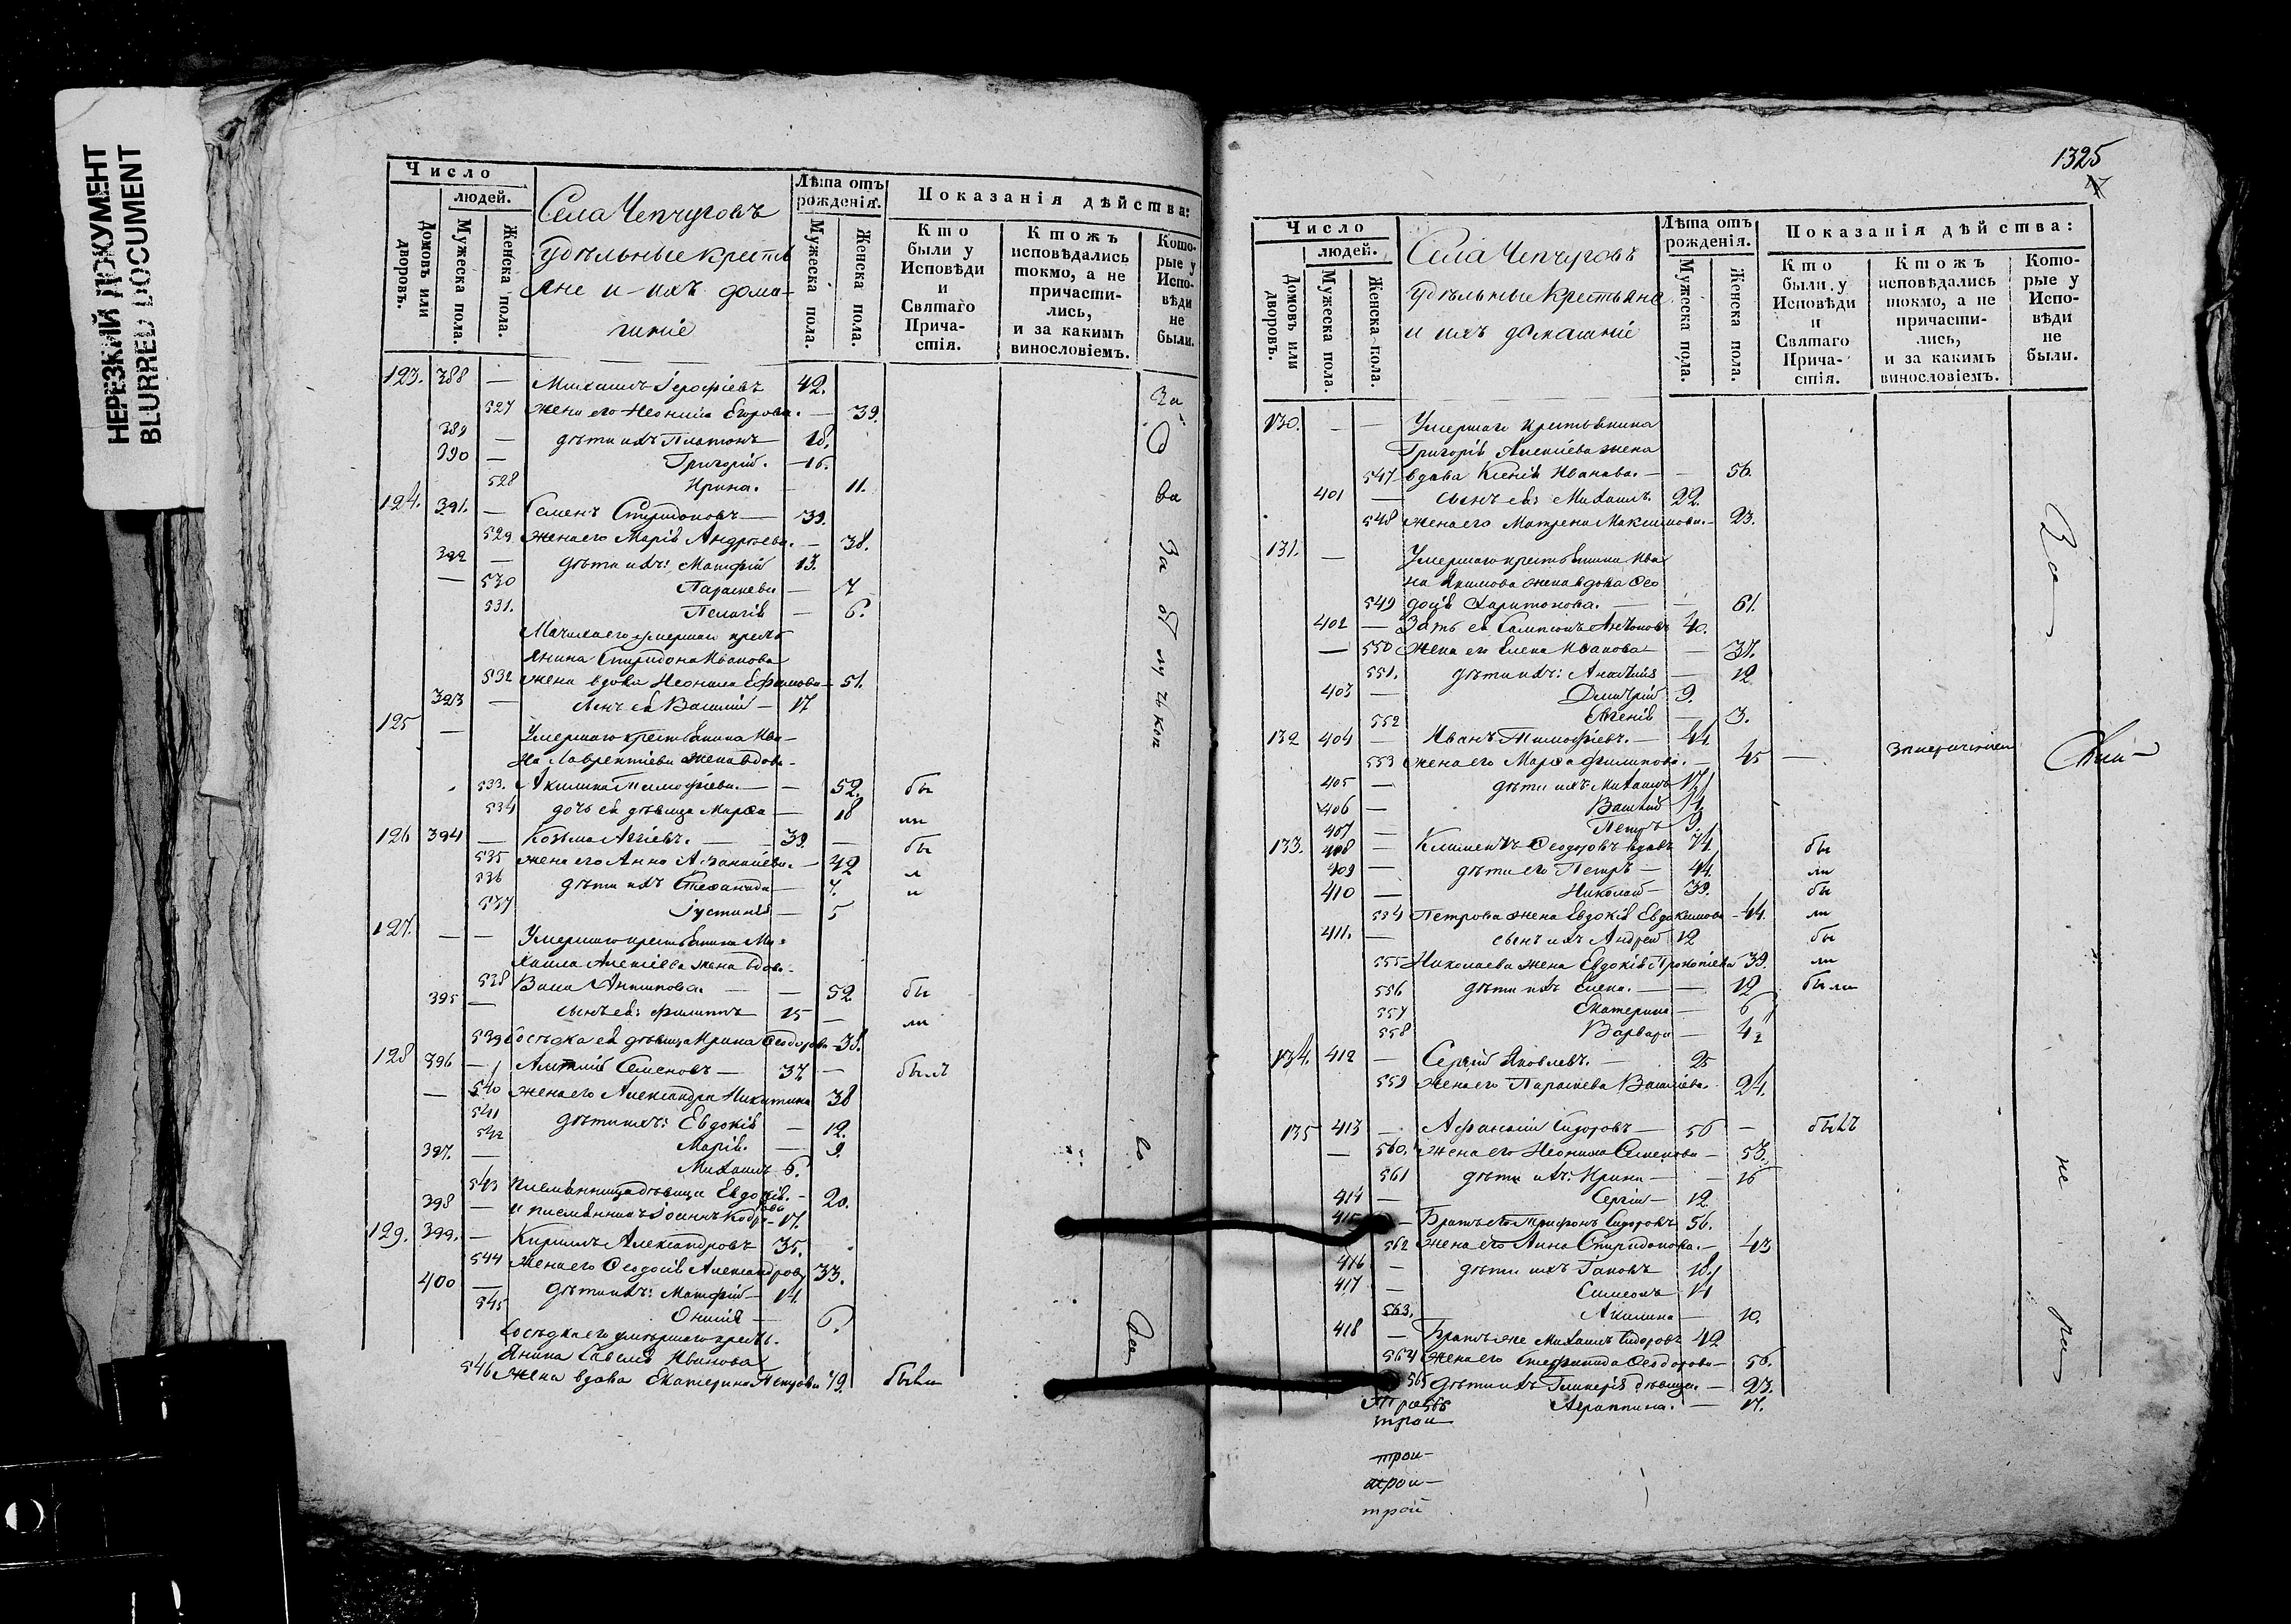 НЕРЕЗКИЙ ДОКУМЕНТ
BLURRED DOCUMENT
Число
людей.
Домовъ или дворовъ.
Мужеска пола.
Женска пола.
Села Чепчуговъ
удѣльные крестья
яне и ихъ дома-
шніе
Лѣта отъ рожденія.
Мужеска пола.
Женска пола.
Показанія дѣйства:
Кто были у Исповѣди и Святаго Прича-стія.
Ктожъ исповѣдались токмо, а не причасти-лись, и за какимъ винословіемъ.
Кото-рые у Испо-вѣди не были.
123. 388 — Михаилъ Іерофіевъ 42.
527 жена его Неонила Егорова. — 39.
389 — дѣти ихъ Платонъ 18.
390 — Григорій. — 16.
528 Ирина. — 11.
124. 391. — Семенъ Спиридоновъ — 39.
529 жена его Марія Андреева. — 38.
392 — дѣти ихъ: Матфій 13.
— 530 Параскева — 7
531. Пелагія — 6.
Мачиха его умершаго кресть
янина Спиридона Иванова
532 жена вдова Неонила Ефимова — 51.
393 — сынъ ея Василій — 17
125 — Умершаго крестьянина Ива-
на Лаврентіева жена вдова-
533. Акилина Тимофіева. — — 52. бы
534 дочь ея дѣвица Марѳа — 18 ли
126 394 — Козьма Агѣевъ. — 39. — бы
535 жена его Анна Аѳанасіева. — 42 л
536 дѣти ихъ Стефанида — 7. и
537 Іустинія — 5
127. — — Умершаго крестьянина Ми-
хаила Алексіева жена вдова-
538 Васса Антипова. — — 52 бы
395 — сынъ ея: Филиппъ 15 — ли
539 Сосѣдка ея дѣвица Ирина Ѳеодорова — 38.
128 396 — Семеновъ — 37. — былъ
— 540 жена его Александра Никитина 38
541 дѣти ихъ: Евдокія — 12.
542 Марія. — 9.
397. — Михаилъ 6.
543 племянница дѣвица Евдокія. — 20.
398 — и племянникъ Іоаннъ — 17.
129. 399. — Кириллъ Александровъ 35.
544 жена его Ѳеодосія Александрова 33.
400 — дѣти ихъ: Матфій — 14.
545 — 6.
Сосѣдка его умершаго кресть-
янина Савелія Иванова
546 жена вдова Екатерина Петрова 79. была
1325
Число
людей.
Домовъ или дворовъ.
Мужеска пола.
Женска пола.
Села Чепчуговъ
удѣльные крестьяне
и ихъ домашніе
Лѣта отъ рожденія.
Мужеска пола.
Женска пола.
Показанія дѣйства:
Кто были у Исповѣди и Святаго Прича-стія.
Ктожъ исповѣдались токмо, а не причасти-лись, и за какимъ винословіемъ.
Кото-рые у Испо-вѣди не были.
130. — — Умершаго крестьянина
Григорія Алексіева жена
547 вдова Ксенія Иванова. — — 56.
401 — сынъ ея: Михаилъ. 22.
548 жена его Матрена Максимова. — 23.
131. — Умершаго крестьянина Ива
на Якимова жена вдова Ѳео
549 досія Харитонова. — — 61.
402 — Зять ея Сампсонъ Антоновъ 40.
— 550 жена его Елена Иванова — — 37.
551. дѣти ихъ: — 12
403 — Дмитрій 9.
552 — 3.
132 404 — Иванъ Тимофіевъ. — 44.
553 жена его Марѳа Филипова. — 45 —
405 — дѣти ихъ Михаилъ 17
406 — Василій 14
407 — Петръ 9.
133. 408 — Климентъ Ѳеодоровъ вдовъ 74 бы
409 — дѣти его Петръ — 44. ли
410 — Николай — 39. бы
554 Петрова жена Евдокія Евдокимова — 44. ли
411. — сынъ ихъ Андрей 12 бы
555 Николаева жена Евдокія Прокопіева 39. ли
556 дѣти ихъ Елена. — — 12 были
557 Екатерина — 6
558 Варвара — 4
134. 412 — Сергій Яковлевъ. — 25
559 жена его Параскева Василіева. 24.
135 413 — Афанасій Сидоровъ — 56 — былъ
— 560. жена его Неонила Семенова — 53.
561 дѣти ихъ: Ирина — — 16
414 — Сергій — 12.
415 — Братъ его Трифонъ Сидоровъ 56.
562 жена его Анна Спиридонова. — 43
416 — дѣти ихъ Іаковъ 18.
417 — Симеонъ 14
563. Акилина — 10.
418 — Братъ же Михаилъ Сидоровъ 42
564 жена его Стефанида Ѳеодорова — 56.
565 дѣти ихъ Гликерія дѣвица. — 23.
566 Агриппина. — 17.
трои
трои-
трои-
трой